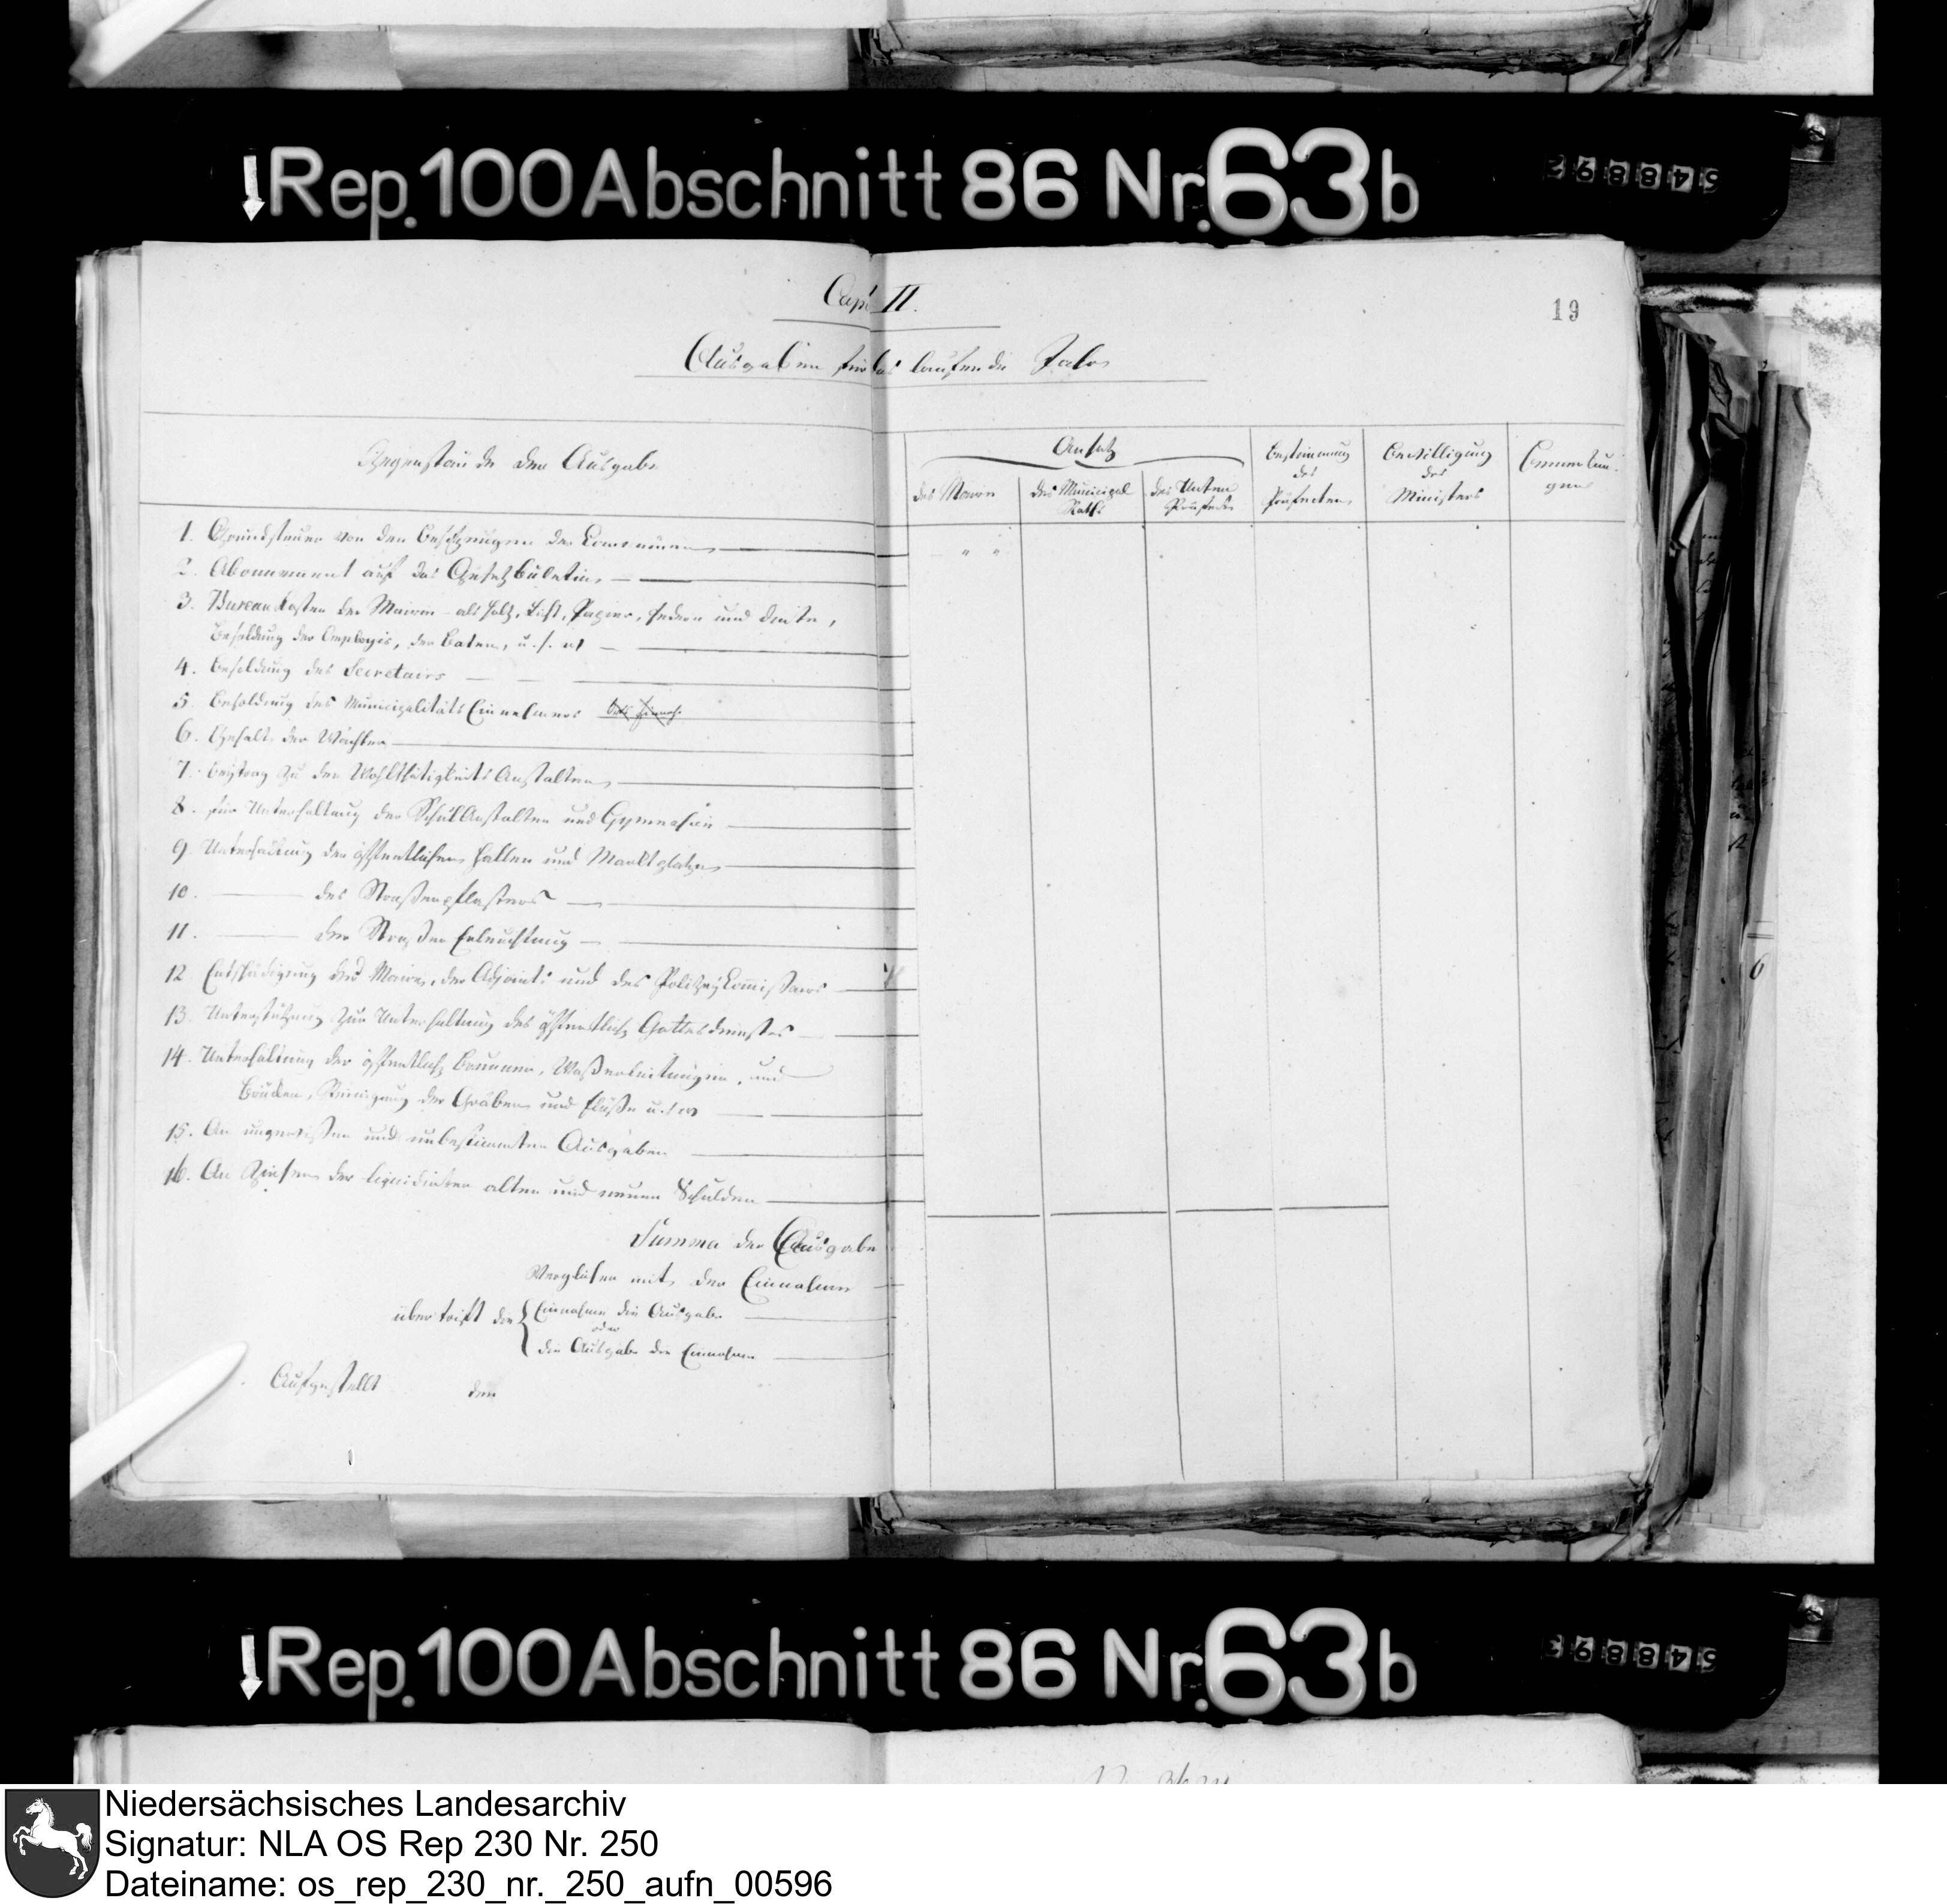 Rep. 100 Abschnitt 86 Nr. 63 b
548892
Cap. II.
19
Ausgaben für das laufende Jahr
Gegenstände der Ausgabe
Ansatz
des Maire
des Municipal Raths
des Unter Präfecten
Bestimmung des Präfecten
Bewilligung des Ministers
Bemerkungen
1. Grundsteuer von den Besitzungen der Commünen
" "
2. Abonnement auf das Gesetzbületin
3. Bureau kosten der Mairie als Holz, Licht, Papier, Federn und Dinte,
Besoldung der Employés, der Boten, u. s. w
4. Besoldung des Secretairs
5. Besoldung des Municipalitäts Einnehmers
6. Gehalt der Wächter
7. Beytrag zu den Wohlthätigkeits Anstalten
8. für Unterhaltung der Schul Anstalten und Gymnasien
9. Unterhaltung der öffentlichen Hallen und Marktplätze
10. des Straßenpflasters
11. der Straßen Erleuchtung
12 Entschädigung des Maire, der Adjoints und des Polizey Commißairs
13. Unterstützung zur Unterhaltung des öffentlich Gottesdienstes
14. Unterhaltung der öffentlich Brunnen, Waßerleitungen, und
Brücken, Reinigung der Gräben und Flüße u. s w
15. An ungewißen und unbestimmten Ausgaben
16. An Zinsen der liquidirten alten und neuen Schulden
Summa der Ausgabe
Verglichen mit der Einnahme
übertrift die { Einnahme die Ausgabe
oder
die Ausgabe die Einnahme
Aufgestellt den
Rep. 100 Abschnitt 86 Nr. 63 b
548893
Niedersächsisches Landesarchiv
Signatur: NLA OS Rep 230 Nr. 250
Dateiname: os_rep_230_nr._250_aufn_00596